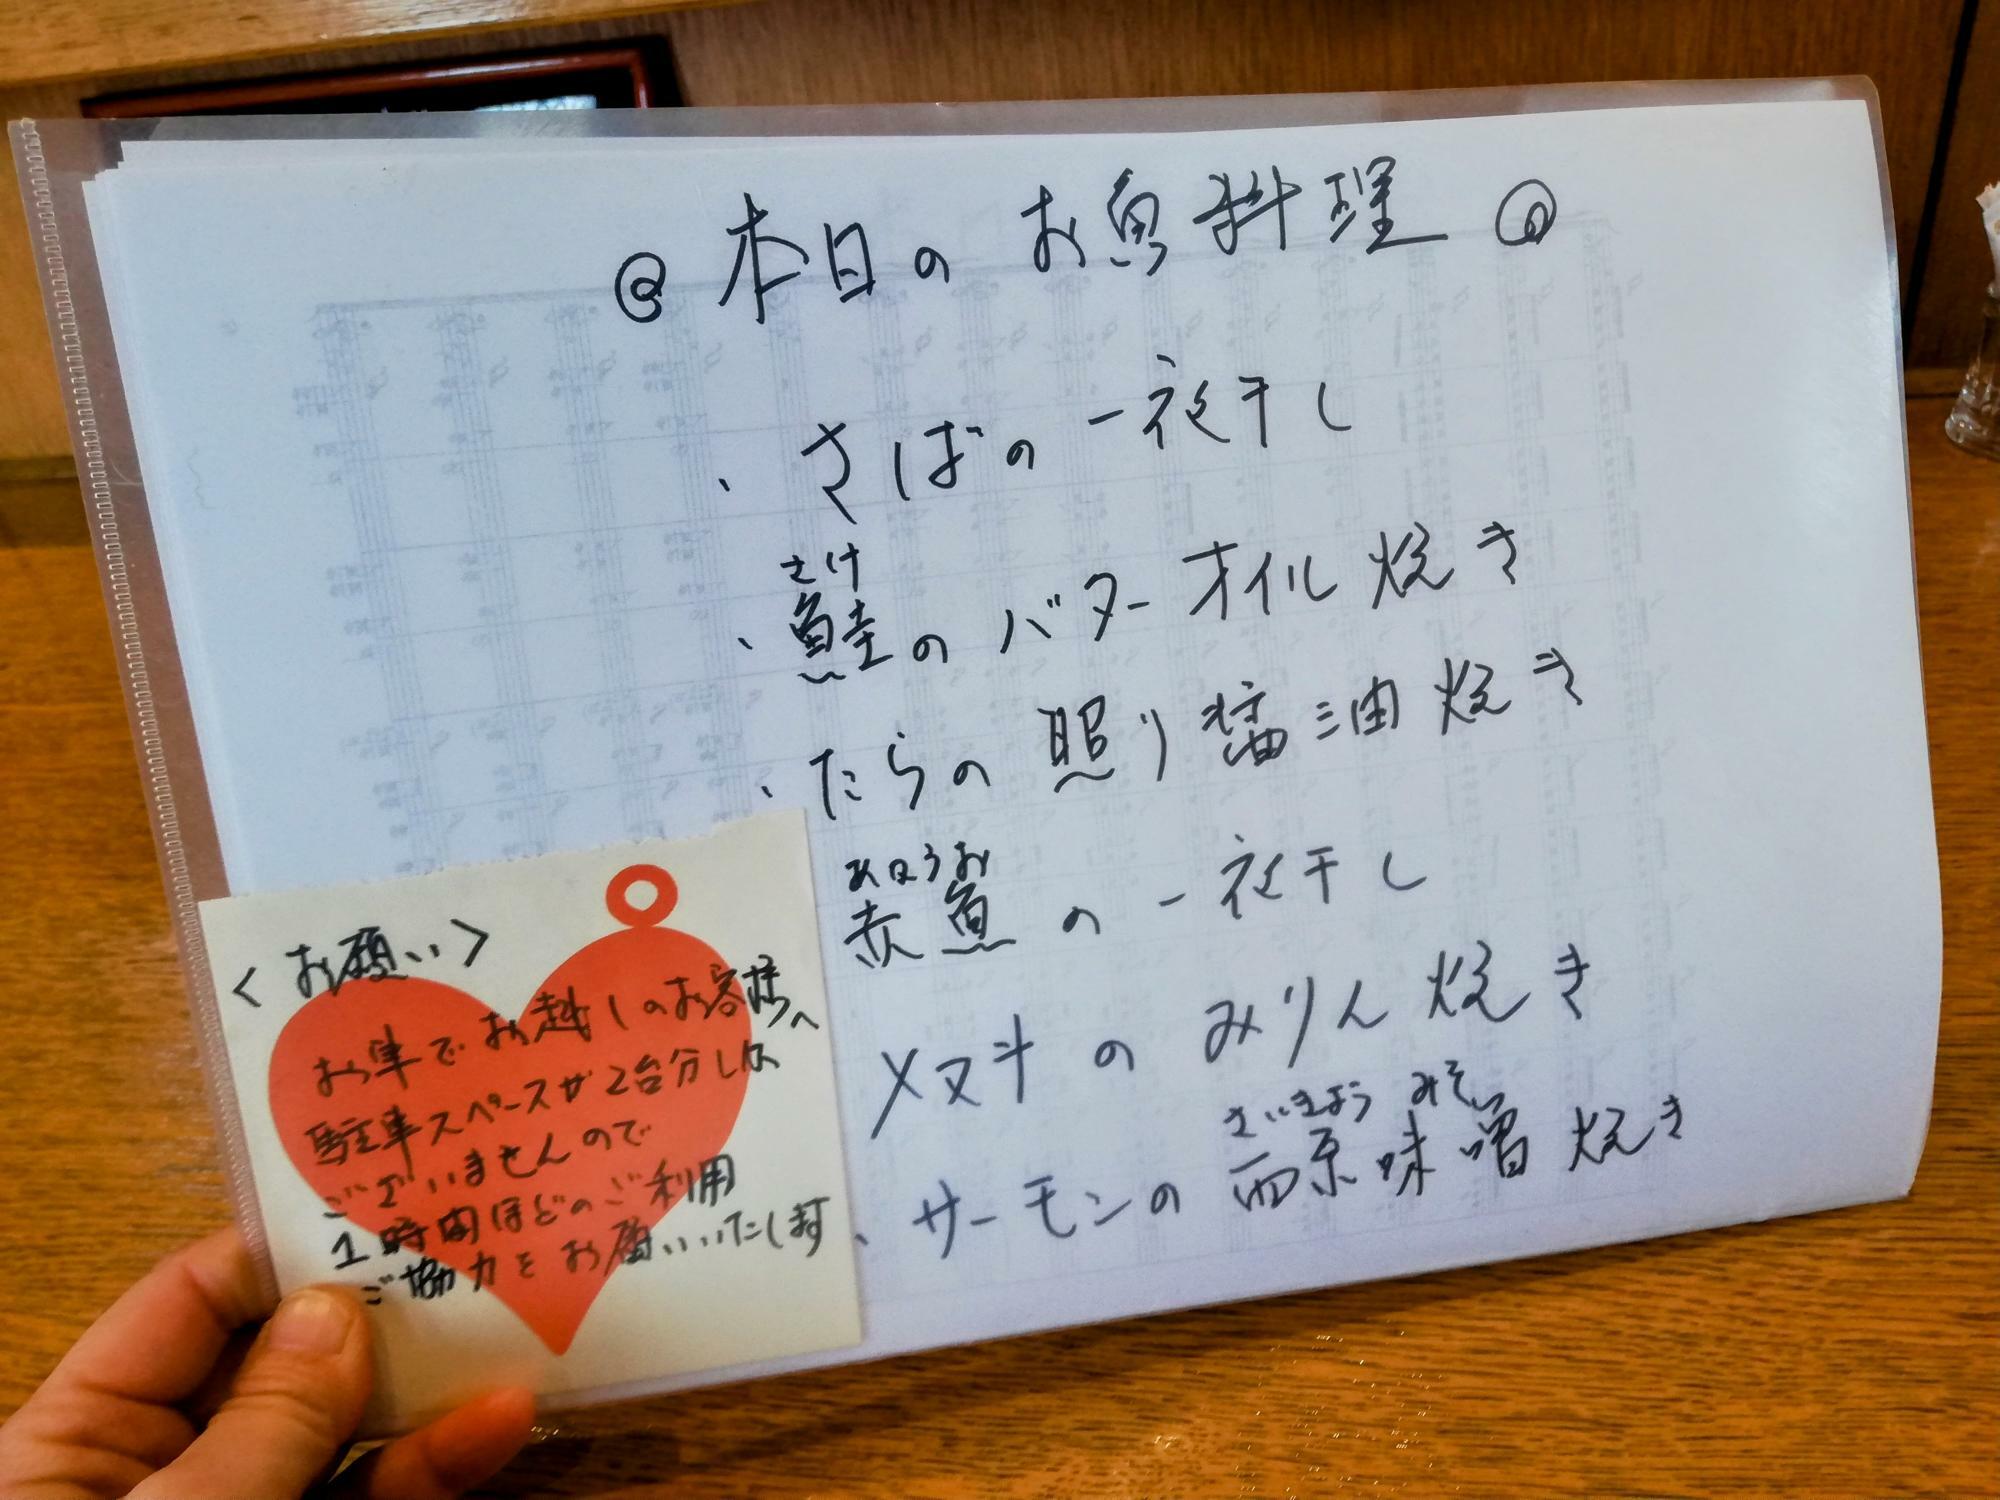 ◎ 本日の お魚料理 ◎
・さばの一夜干し
さけ
・鮭の バターオイル焼き
・たらの 照り醤油焼き
あこうお
赤魚の一夜干し
メヌキの みりん焼き
さいきょう みそ
・サーモンの 西京味噌焼き
<お願い>
お車でお越しのお客様へ
駐車スペースが2台分しか
ございませんので
1時間ほどのご利用
ご協力をお願いいたします